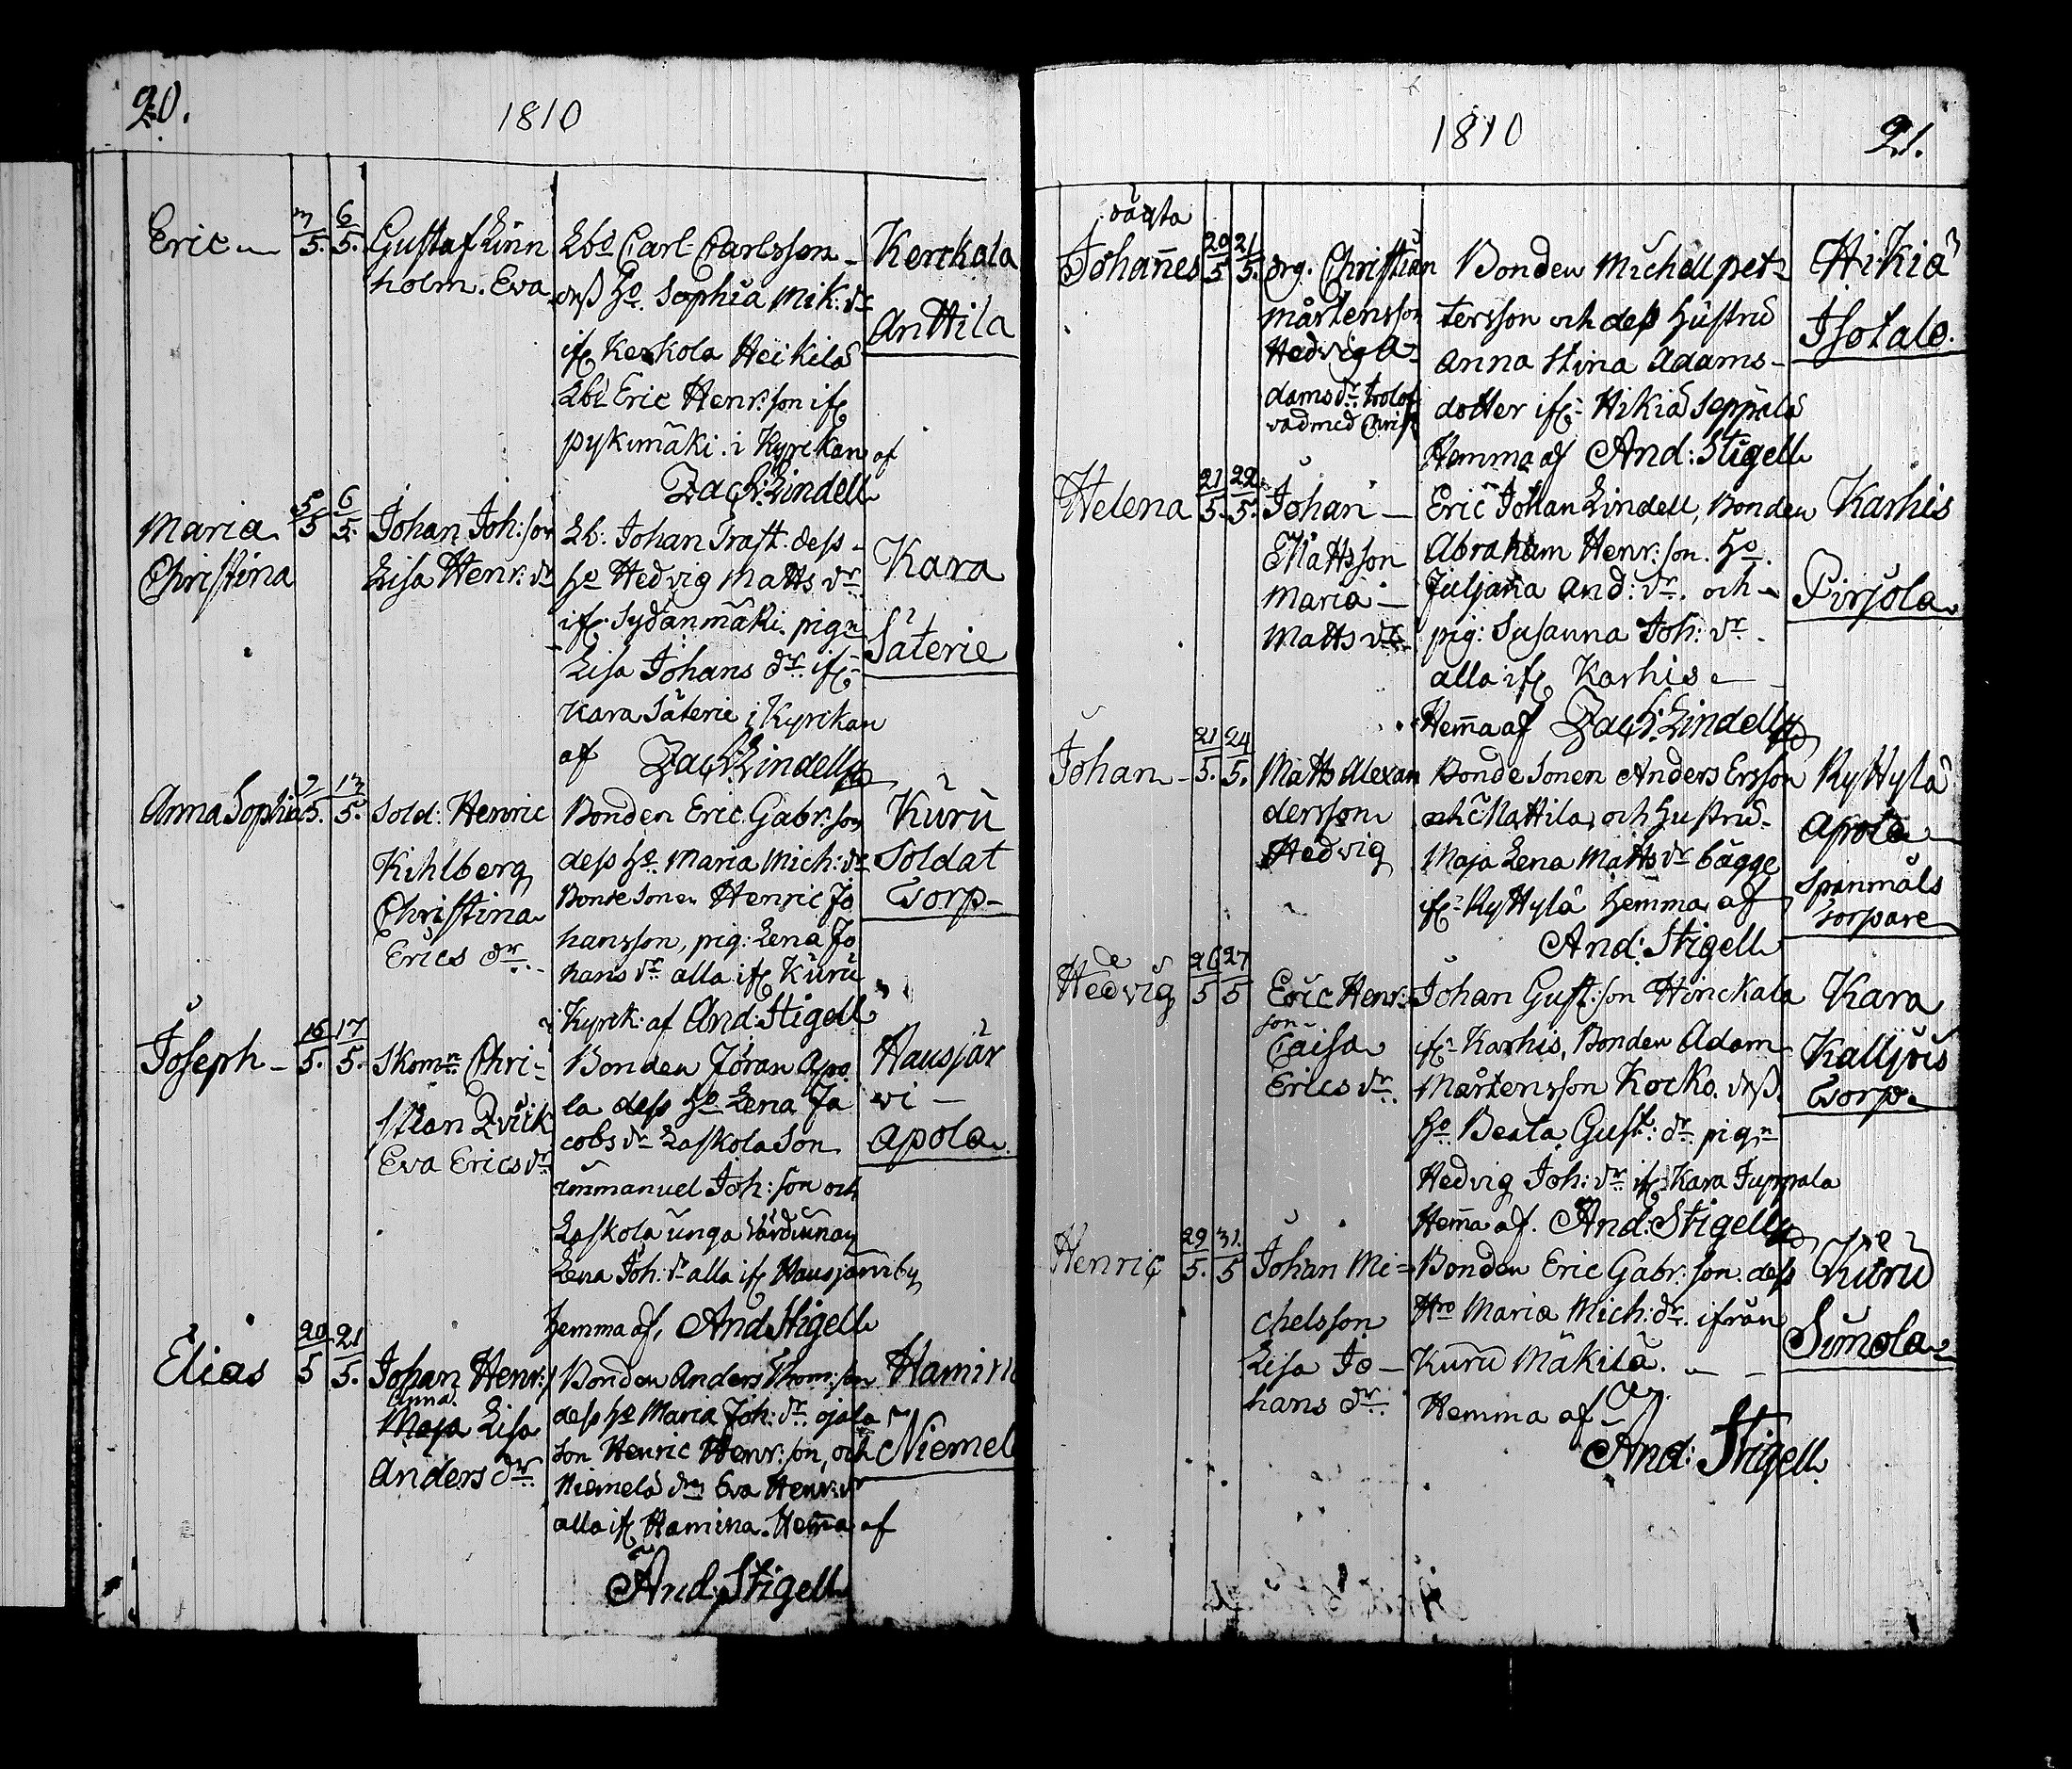 20.
1810
Eric
3/5. 6/5.
Gustaf Linn
holm. Eva
Lbd Carl Carlsson
dess Ho. Sophia Mik: dr
ifr Kerkola Heikilä
Lbd Eric Henr: son ifr
pykimäki. i Kyrckan af
Zach: Lindell
Kerckala
Anttila
Maria
Christina
5/5 6/5.
Johan Joh: son
Lisa Henr: dr
Lb. Johan Trast. dess
Ho Hedvig Matts dr
ifr. Sydänmäki. pign
Lisa Johans dr. ifr
Kara Säterie i Kyrckan
af Zach: Lindell
Kara
Säterie
Anna Sophia
5. 13/5.
Sold: Henric
Kihlberg
Christina
Erics dr.
Bonden Eric Gabr: son
dess Ho. Maria Mich: dr
Bonde Sonen Henric Jo
hansson, pig: Lena Jo
hans dr alla ifr Kuru
Kyrck: af And: Stigell
Kuru
Soldat
Torp
Joseph
16/5. 17/5.
Skomn Chri-
stian Qvick
Eva Erics dr
Bonden Jöran Apo
la dess Ho Lena Ja
cobs dr Laskola Son
immanuel Joh: son och
Laskola unga Värdinnan
Lena Joh: dr alla ifr Hausjärviby
Hemma af, And Stigell
Hausjär
vi
Apola.
Elias
20/5 21/5.
Johan Henr: s
Anna
Maja Lisa
Anders dr.
Bonden Anders Thom: son
dess Ho Maria Joh: dr. ojala
son Henric Henr: son, och
Niemelä drn Eva Henr: dr
alla ifr Hamina. Hemma af
And: Stigell
Hamina
Niemel
1810
21.
oäkta
Johannes
20/5 21/5.
drg. Christian
Mårtensson
Hedvig A-
dams dr. trolof
vad med Christ
Bonden Michell pet-
tersson och dess Hustru
Anna Stina Adams-
dotter ifr. Hikiä Seppälä
Hemma af And: Stigell
Hikiä
Isotalo.
Helena
21/5. 22/5.
Johan
Mattsson
Maria
Matts dr
Eric Johan Lindell, Bonden
Abraham Henr: son. Ho.
Juljana And: dr. och
pig: Susanna Joh: dr
alla ifr Karhis
Hemma af Zach: Lindell
Karhis
Pirjola
Johan
21/5. 24/5.
Matts Alexan
dersson
Hedvig
Bonde Sonen Anders Ersson
och Mattila, och Hustru
Maja Lena Matts dr bägge
ifr Ryttylä Hemma af
And: Stigell
Ryttylä
Apola
Spanmåls
Torpare
Hedvig
26/5 27/5
Eric Henr:
son
Caisa
Erics dr.
Johan Gust: son Hinckala
ifr Karhis, Bonden Adam
Mårtensson Kocko. dess
Ho Beata Gust: dr pign
Hedvig Joh: dr ifr Kara Juppala
Hemma af. And: Stigell
Kara
Kalljois
Torp
Henric
29/5. 31./5
Johan Mi-
chelsson
Lisa Jo-
hans dr.
Bonden Eric Gabr: son dess
Hro Maria Mich: dr. ifrån
Kuru Mäkilä.
Hemma af
And: Stigell
Kuru
Simola